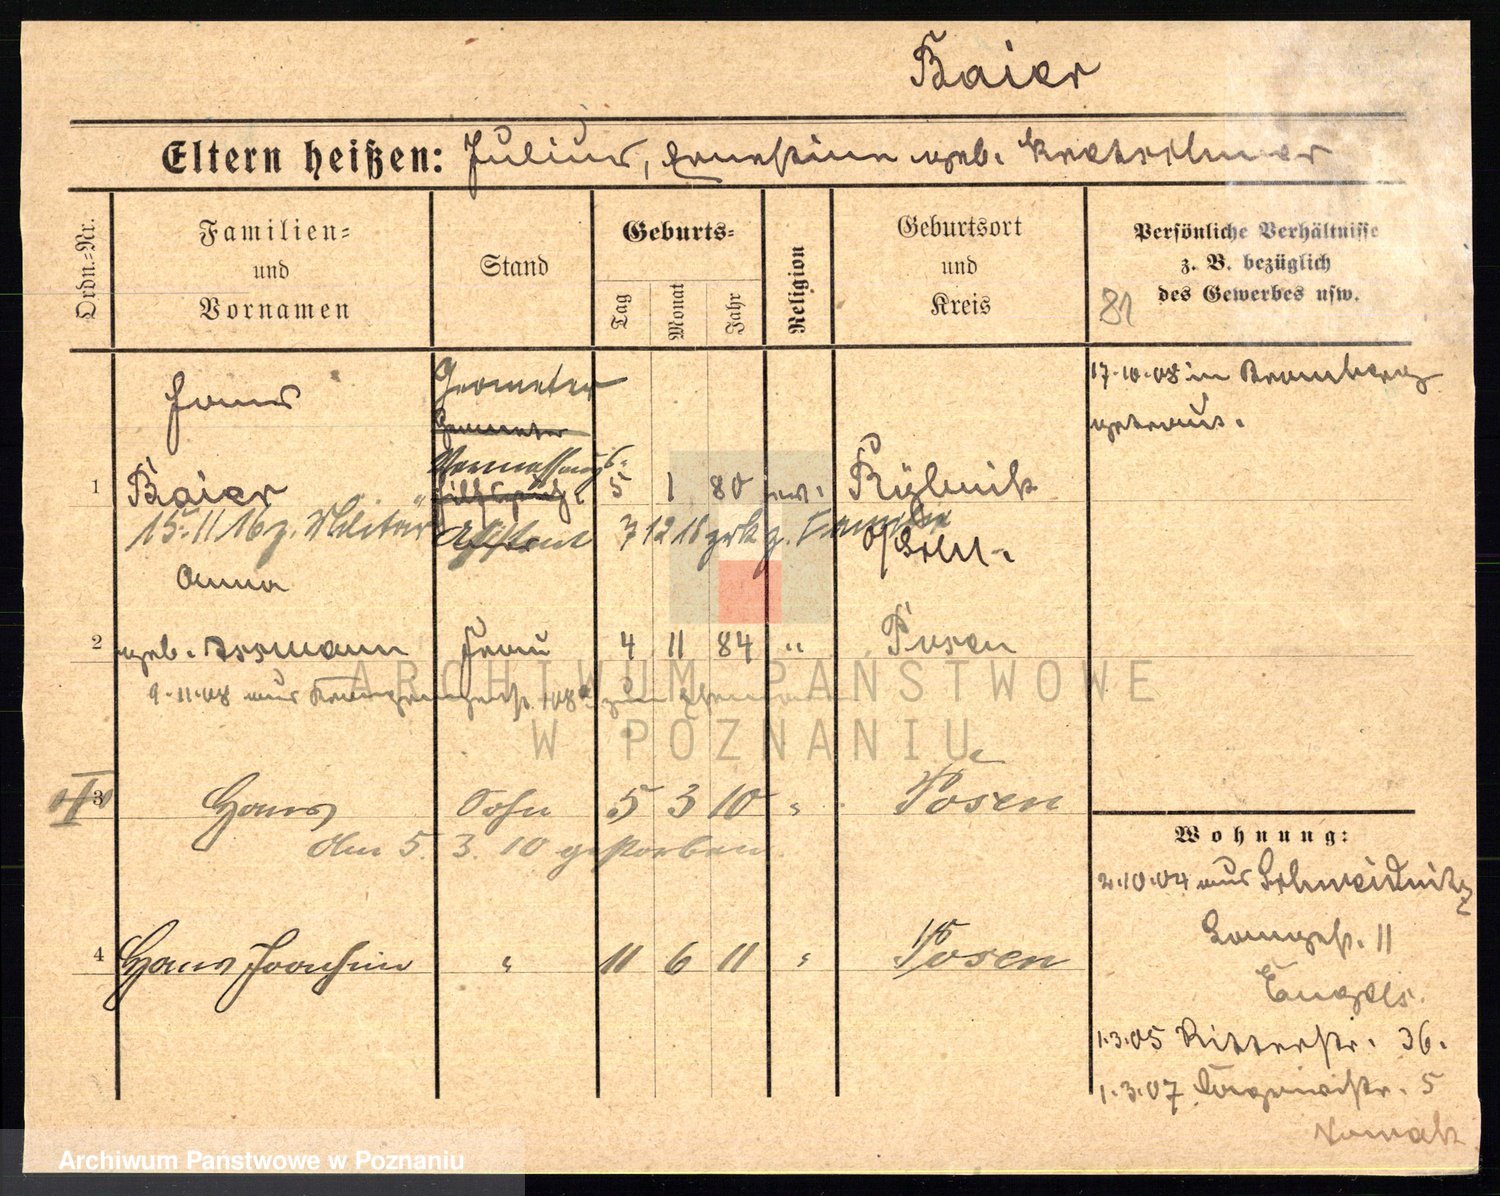 Baier
Eltern heißen: Julius, Ernestine geb. Kretschmer
Ordn.-Nr.
Familien-
und
Vornamen
Stand
Geburts-
Tag
Monat
Jahr
Religion
Geburtsort
und
Kreis
Persönliche Verhältnisse
z. B. bezüglich
des Gewerbes usw.
81
17.10.08 in Bromberg
getraut.
Geometer
Geometer
Vermessungs-
Assistent
1 Baier 5 1 80 ev. Rybnik
O/Schl.
15.11 16 z. Militär 7 12 18 zrk z. Familie
Anna
2 geb. Assmann Frau 4 11 84 " Posen
9.11.08 aus
3 Hans Sohn 5 3 10 " Posen
Am 5. 3. 10 gestorben.
4 Hans Joachim " 11 6 11 " Posen
Wohnung:
2.10.04 aus Schweidnitz
Langestr. 11
Engels.
1.3.05 Ritterstr. 36.
1.3.07 5
Nowak
ARCHIWUM PAŃSTWOWE
W POZNANIU
Archiwum Państwowe w Poznaniu